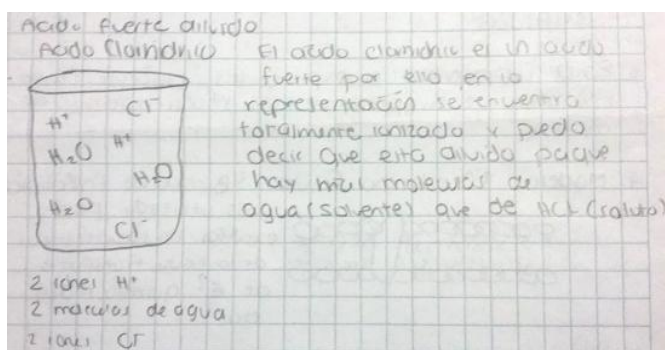 Acido fuerte diluido
Acido Clorhidrico
El acido clorhidric es un acido
fuerte por ello en la
representación se encuentra
totalmente ionizado y pedo
decir que esta diluido porque
hay mas moleculas de
agua (solvente) que de HCl (soluto)
Cl⁻
H⁺
H⁺
H₂O
H₂O
H₂O
Cl⁻
2 iones H⁺
2 moleculas de agua
2 iones Cl⁻